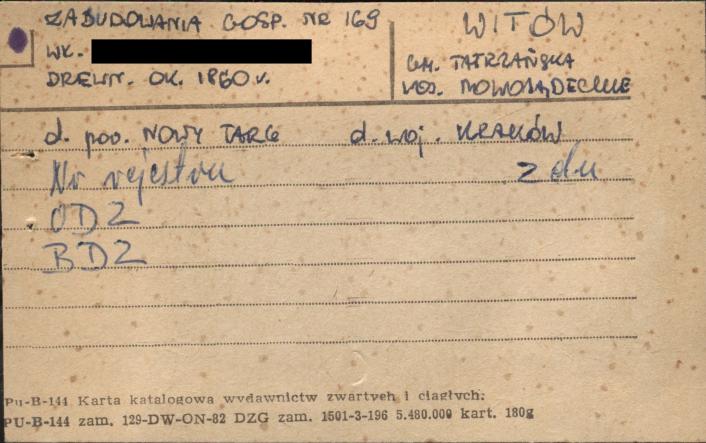 ZABUDOWANIA GOSP. NR 169
WŁ.
DREWN. OK. 1860 r.
WITÓW
GM. TATRZAŃSKA
WOJ. NOWOSĄDECKIE
d. pow. NOWY TARG d. woj. KRAKÓW
Nr rejestru z dn
ODZ
BDZ
PU-B-144 Karta katalogowa wydawnictw zwartych i ciągłych.
PU-B-144 zam. 129-DW-ON-82 DZG zam. 1501-3-196 5.480.000 kart. 180g